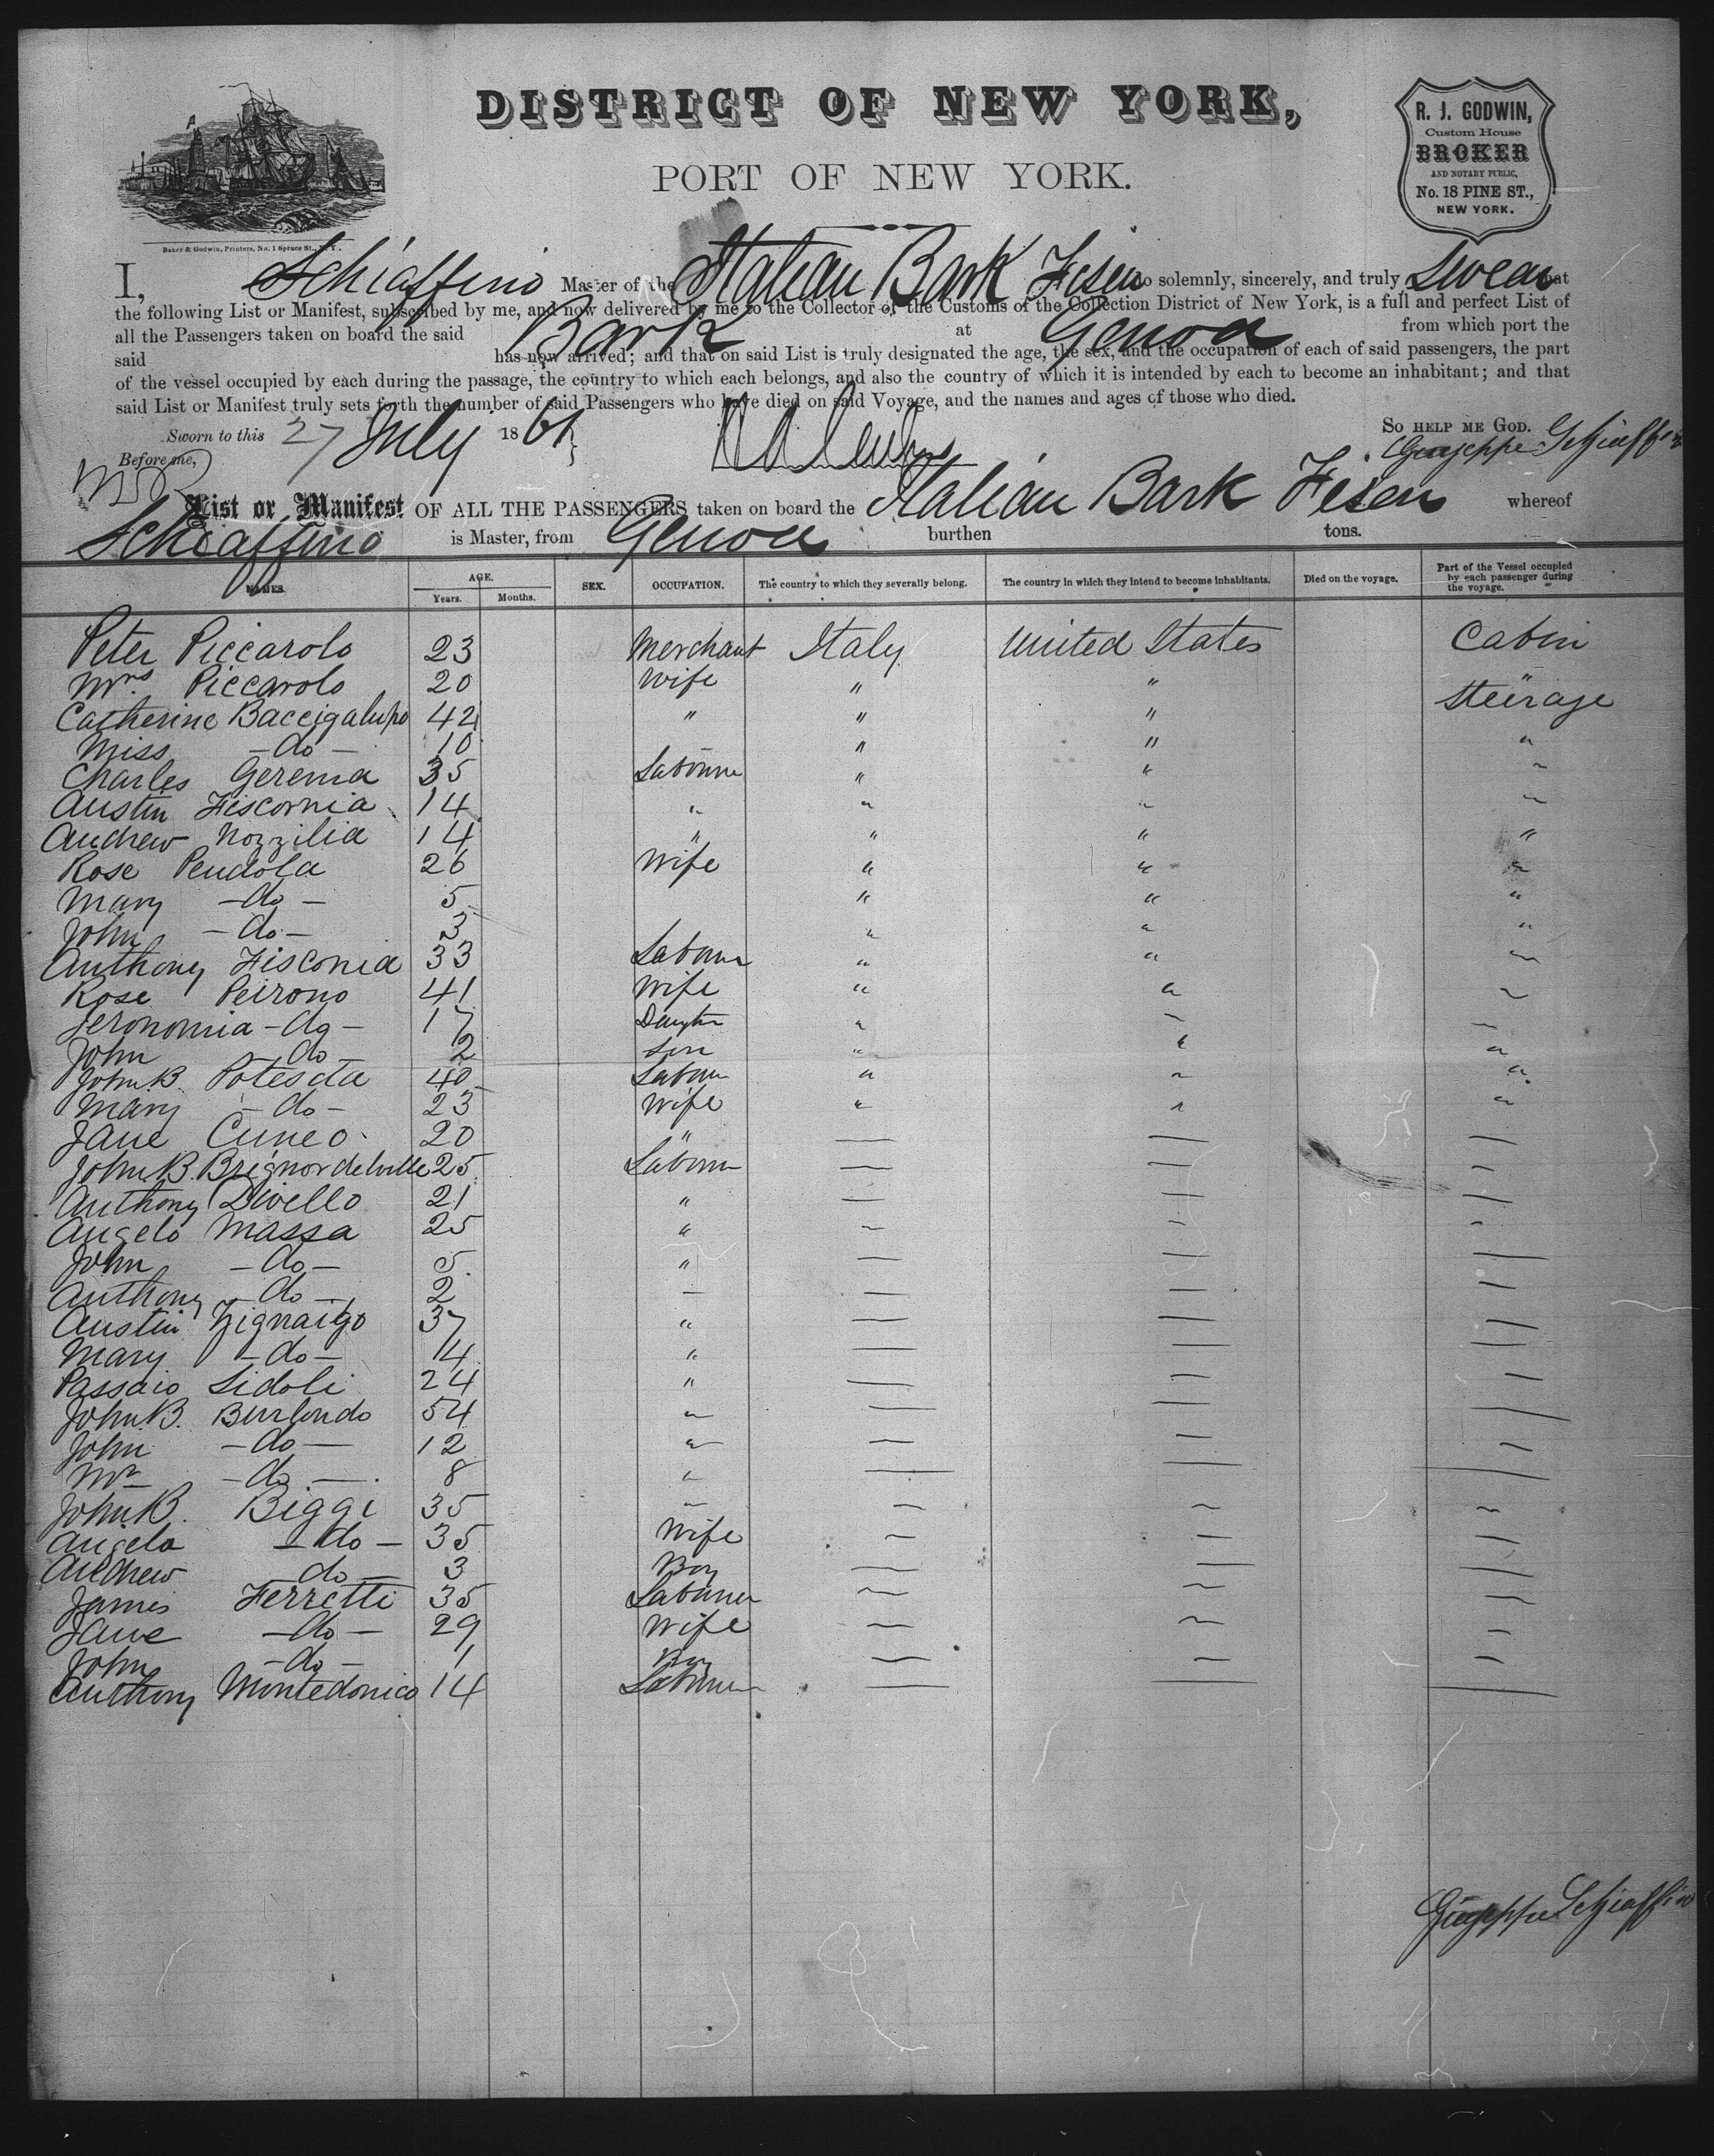 DISTRICT OF NEW YORK,
PORT OF NEW YORK.
R. J. GODWIN,
Custom House
BROKER
AND NOTARY PUBLIC,
No. 18 PINE ST.,
NEW YORK.
Baker & Godwin, Printers, No. 1 Spruce St., N. Y.
I, Schiaffino Master of the Italian Bark do solemnly, sincerely, and truly, Swear that
the following List or Manifest, subscribed by me, and now delivered by me to the Collector of the Customs of the Collection District of New York, is a full and perfect List of
all the Passengers taken on board the said Bark at Genoa from which port the
said has now arrived; and that on said List is truly designated the age, the sex, and the occupation of each of said passengers, the part
of the vessel occupied by each during the passage, the country to which each belongs, and also the country of which it is intended by each to become an inhabitant; and that
said List or Manifest truly sets forth the number of said Passengers who have died on said Voyage, and the names and ages of those who died.
Sworn to this 27 July 186 SO HELP ME GOD.
Before me, Giuseppe Schiaffino
List or Manifest OF ALL THE PASSENGERS taken on board the Italian Bark whereof
Schiaffino is Master, from Genoa burthen tons.
NAMES. AGE. Years. Months. SEX. OCCUPATION. The country to which they severally belong. The country in which they intend to become inhabitants. Died on the voyage. Part of the Vessel occupied by each passenger during the voyage.
Peter Piccarolo 23 Merchant Italy United States Cabin
Mrs Piccarolo 20 Wife " " "
Catherine Baccigalupo 42 " " " Steerage
Miss - do - 10 " " "
Charles Gerema 35 Labourer " " "
Austin Fiscornia 14 " " " "
Andrew Nozzilia 14 " " " "
Rose Pendola 26 Wife " " "
Mary - do - 5 " " "
John - do - 3 " " "
Anthony Fisconia 33 Labour " " "
Rose Peirono 41 Wife " " "
Jeronomia - do - 17 Daughter " " "
John - do - 2 Son " " "
John B. Potesta 40 Labour " " "
Mary - do - 23 Wife " " "
Jane Cuneo 20 " — — —
John B. 25 Labour — — —
Anthony Divello 21 " — — —
Angelo Massa 25 " — — —
John - do - 5 " — — —
Anthony - do - 2 — — — —
Austin Zignaigo 37 " — — —
Mary - do - 14 " — — —
Passaio Sidoli 24 " — — —
John B. Burlondo 54 " — — —
John - do - 12 " — — —
Mr - do - 8 " — — —
John B. Biggi 35 " — — —
Angela - do - 35 Wife — — —
Andrew do 3 Boy — — —
James Ferretti 35 Labourer — — —
Jane - do - 29 Wife — — —
John - do - 1 Boy — — —
Anthony Montedonico 14 Labourer — — —
Giuseppe Schiaffino